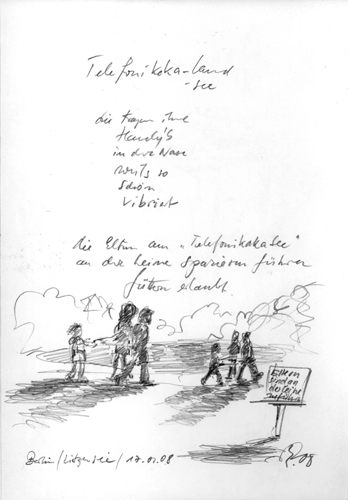 Telefonikoka-Land
-see
die tragen ihre
Handy's
in der Nase
weils so
schön
vibriert
die Eltern am "Telefonikakasee"
an der Leine spazieren führen
füttern erlaubt
Eltern
sind an
der Leine
zu führen
Berlin/Litzensee/17.01.08
08